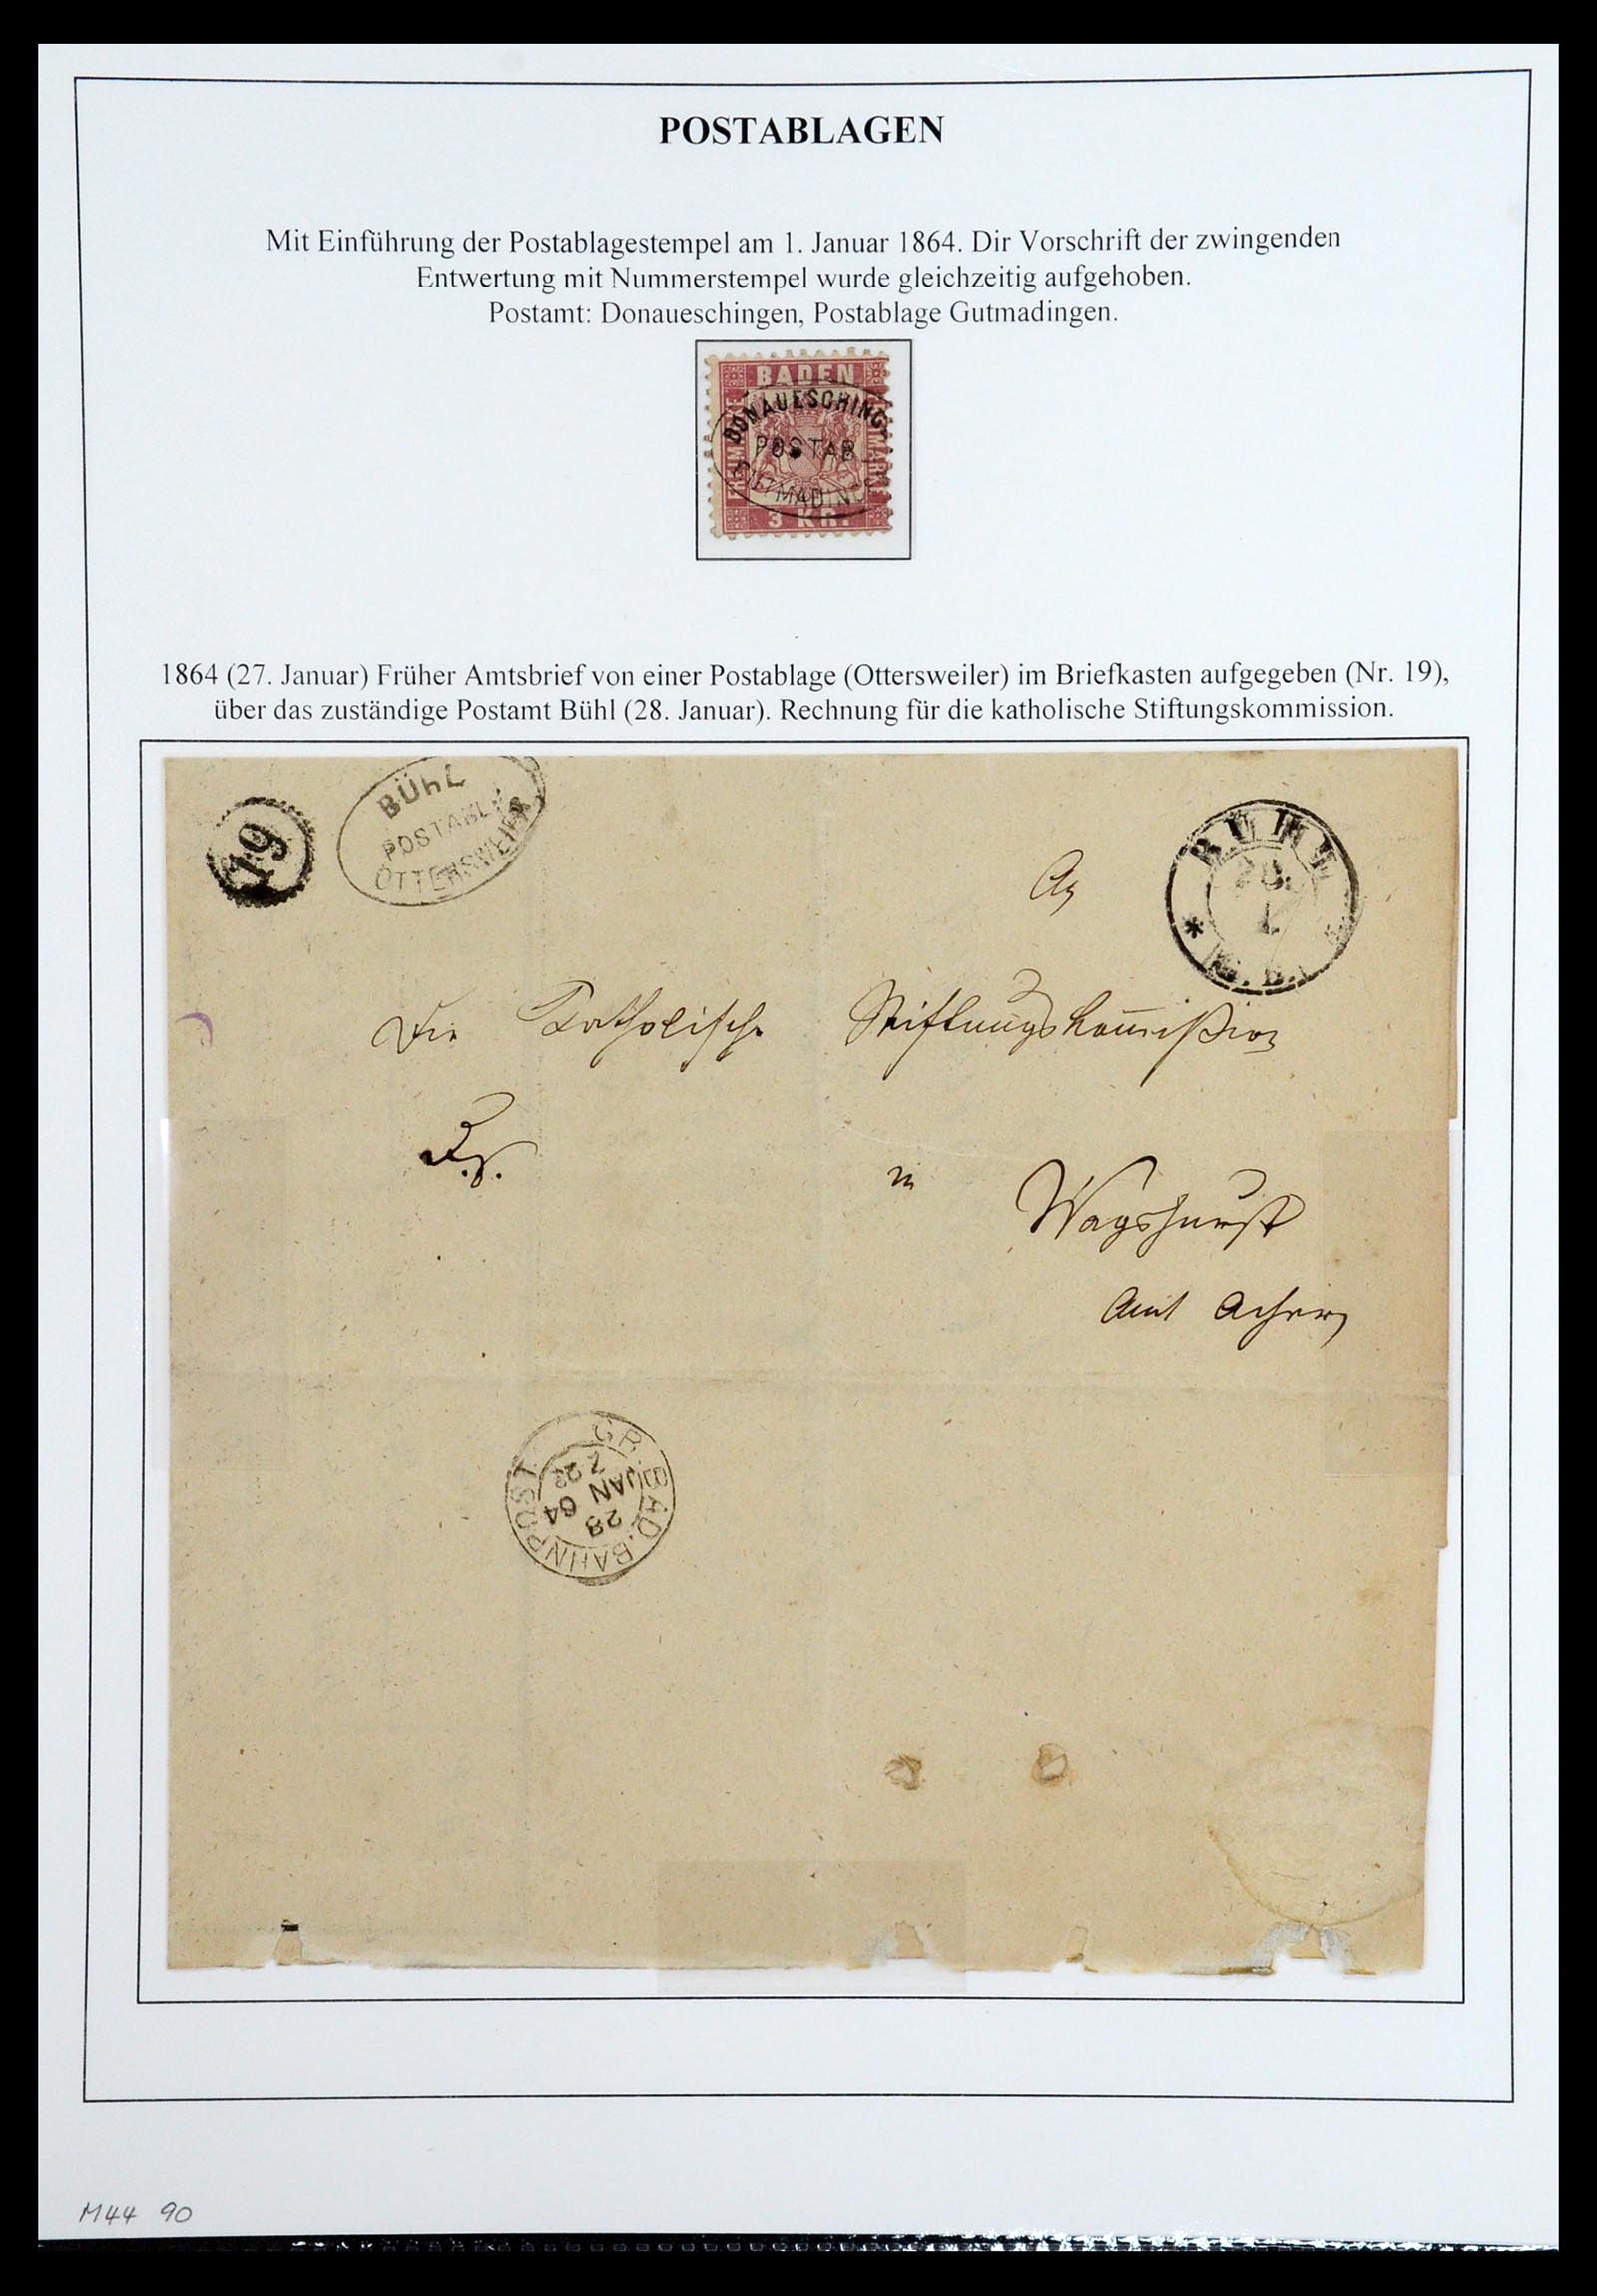 POSTABLAGEN
Mit Einführung der Postablagestempel am 1. Januar 1864. Dir Vorschrift der zwingenden
Entwertung mit Nummerstempel wurde gleichzeitig aufgehoben.
Postamt: Donaueschingen, Postablage Gutmadingen.
BADEN
FREIMARKE
DONAUESCHING
POSTAB
GUTMADINGEN
3 KR.
1864 (27. Januar) Früher Amtsbrief von einer Postablage (Ottersweiler) im Briefkasten aufgegeben (Nr. 19),
über das zuständige Postamt Bühl (28. Januar). Rechnung für die katholische Stiftungskommission.
19
BÜHL
POSTABL.
OTTERSWEIER
BÜHL
28.
1.
* R. B. *
An
Die Katholische Stiftungskommißion
in Wagshurst
Amt Achern
GR. BAD. BAHNPOST
28
JAN 64
Z 22
M44 90